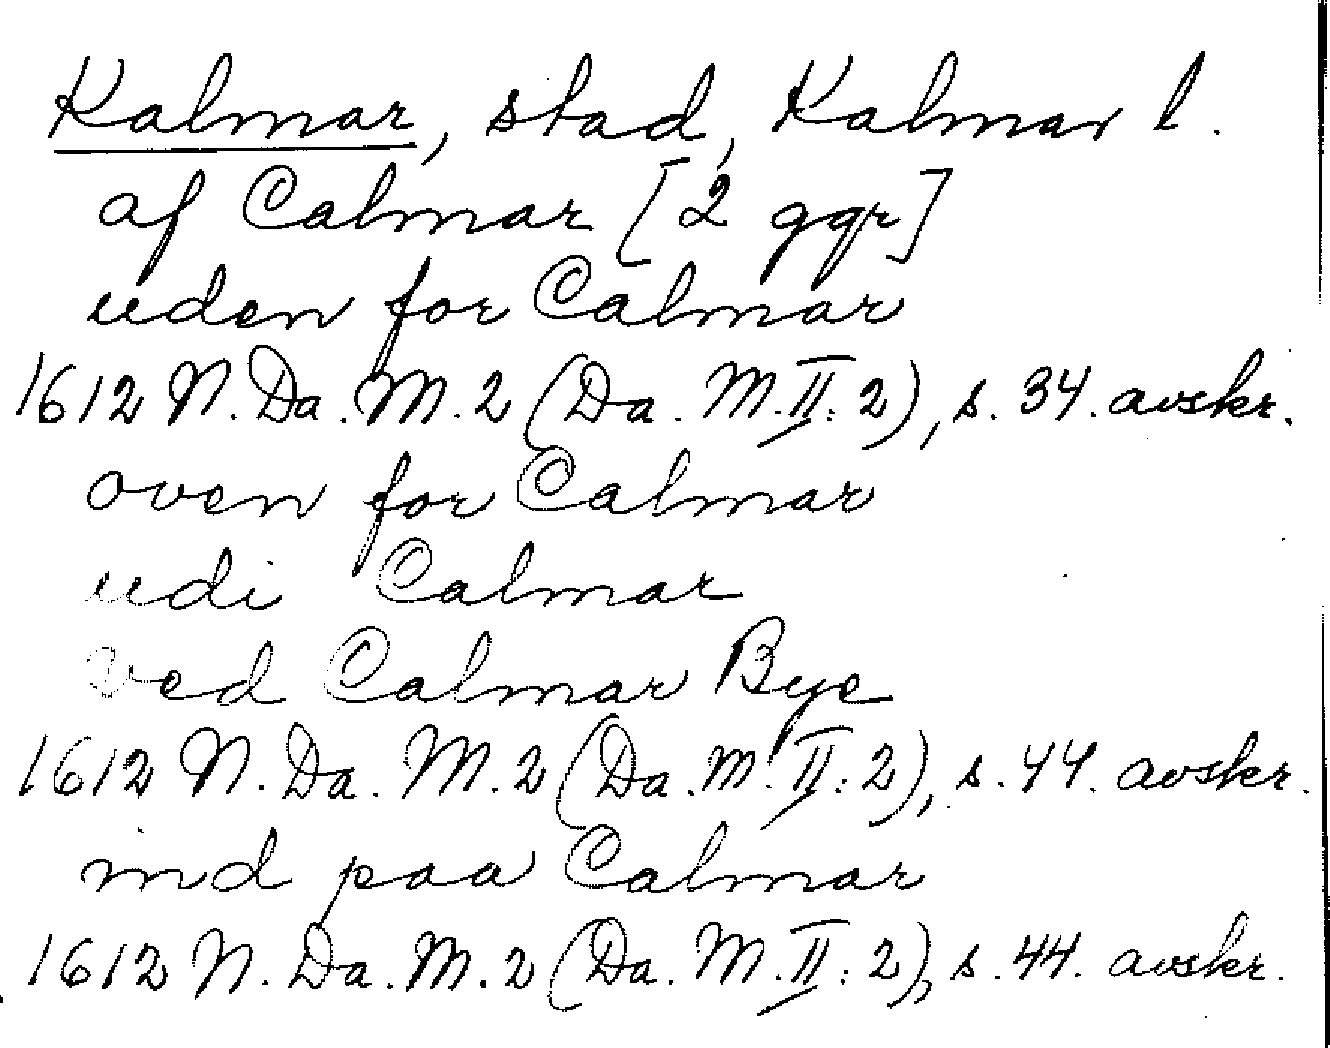 Kalmar, stad, Kalmar l.
af Calmar [2 ggr]
uden for Calmar
1612 N. Da. M. 2 (Da. M. II: 2), s. 34. avskr.
oven for Calmar
udi Calmar
ved Calmar Bye
1612 N. Da. M. 2 (Da. M. II: 2), s. 44. avskr.
ind paa Calmar
1612 N. Da. M. 2 (Da. M. II: 2), s. 44. avskr.